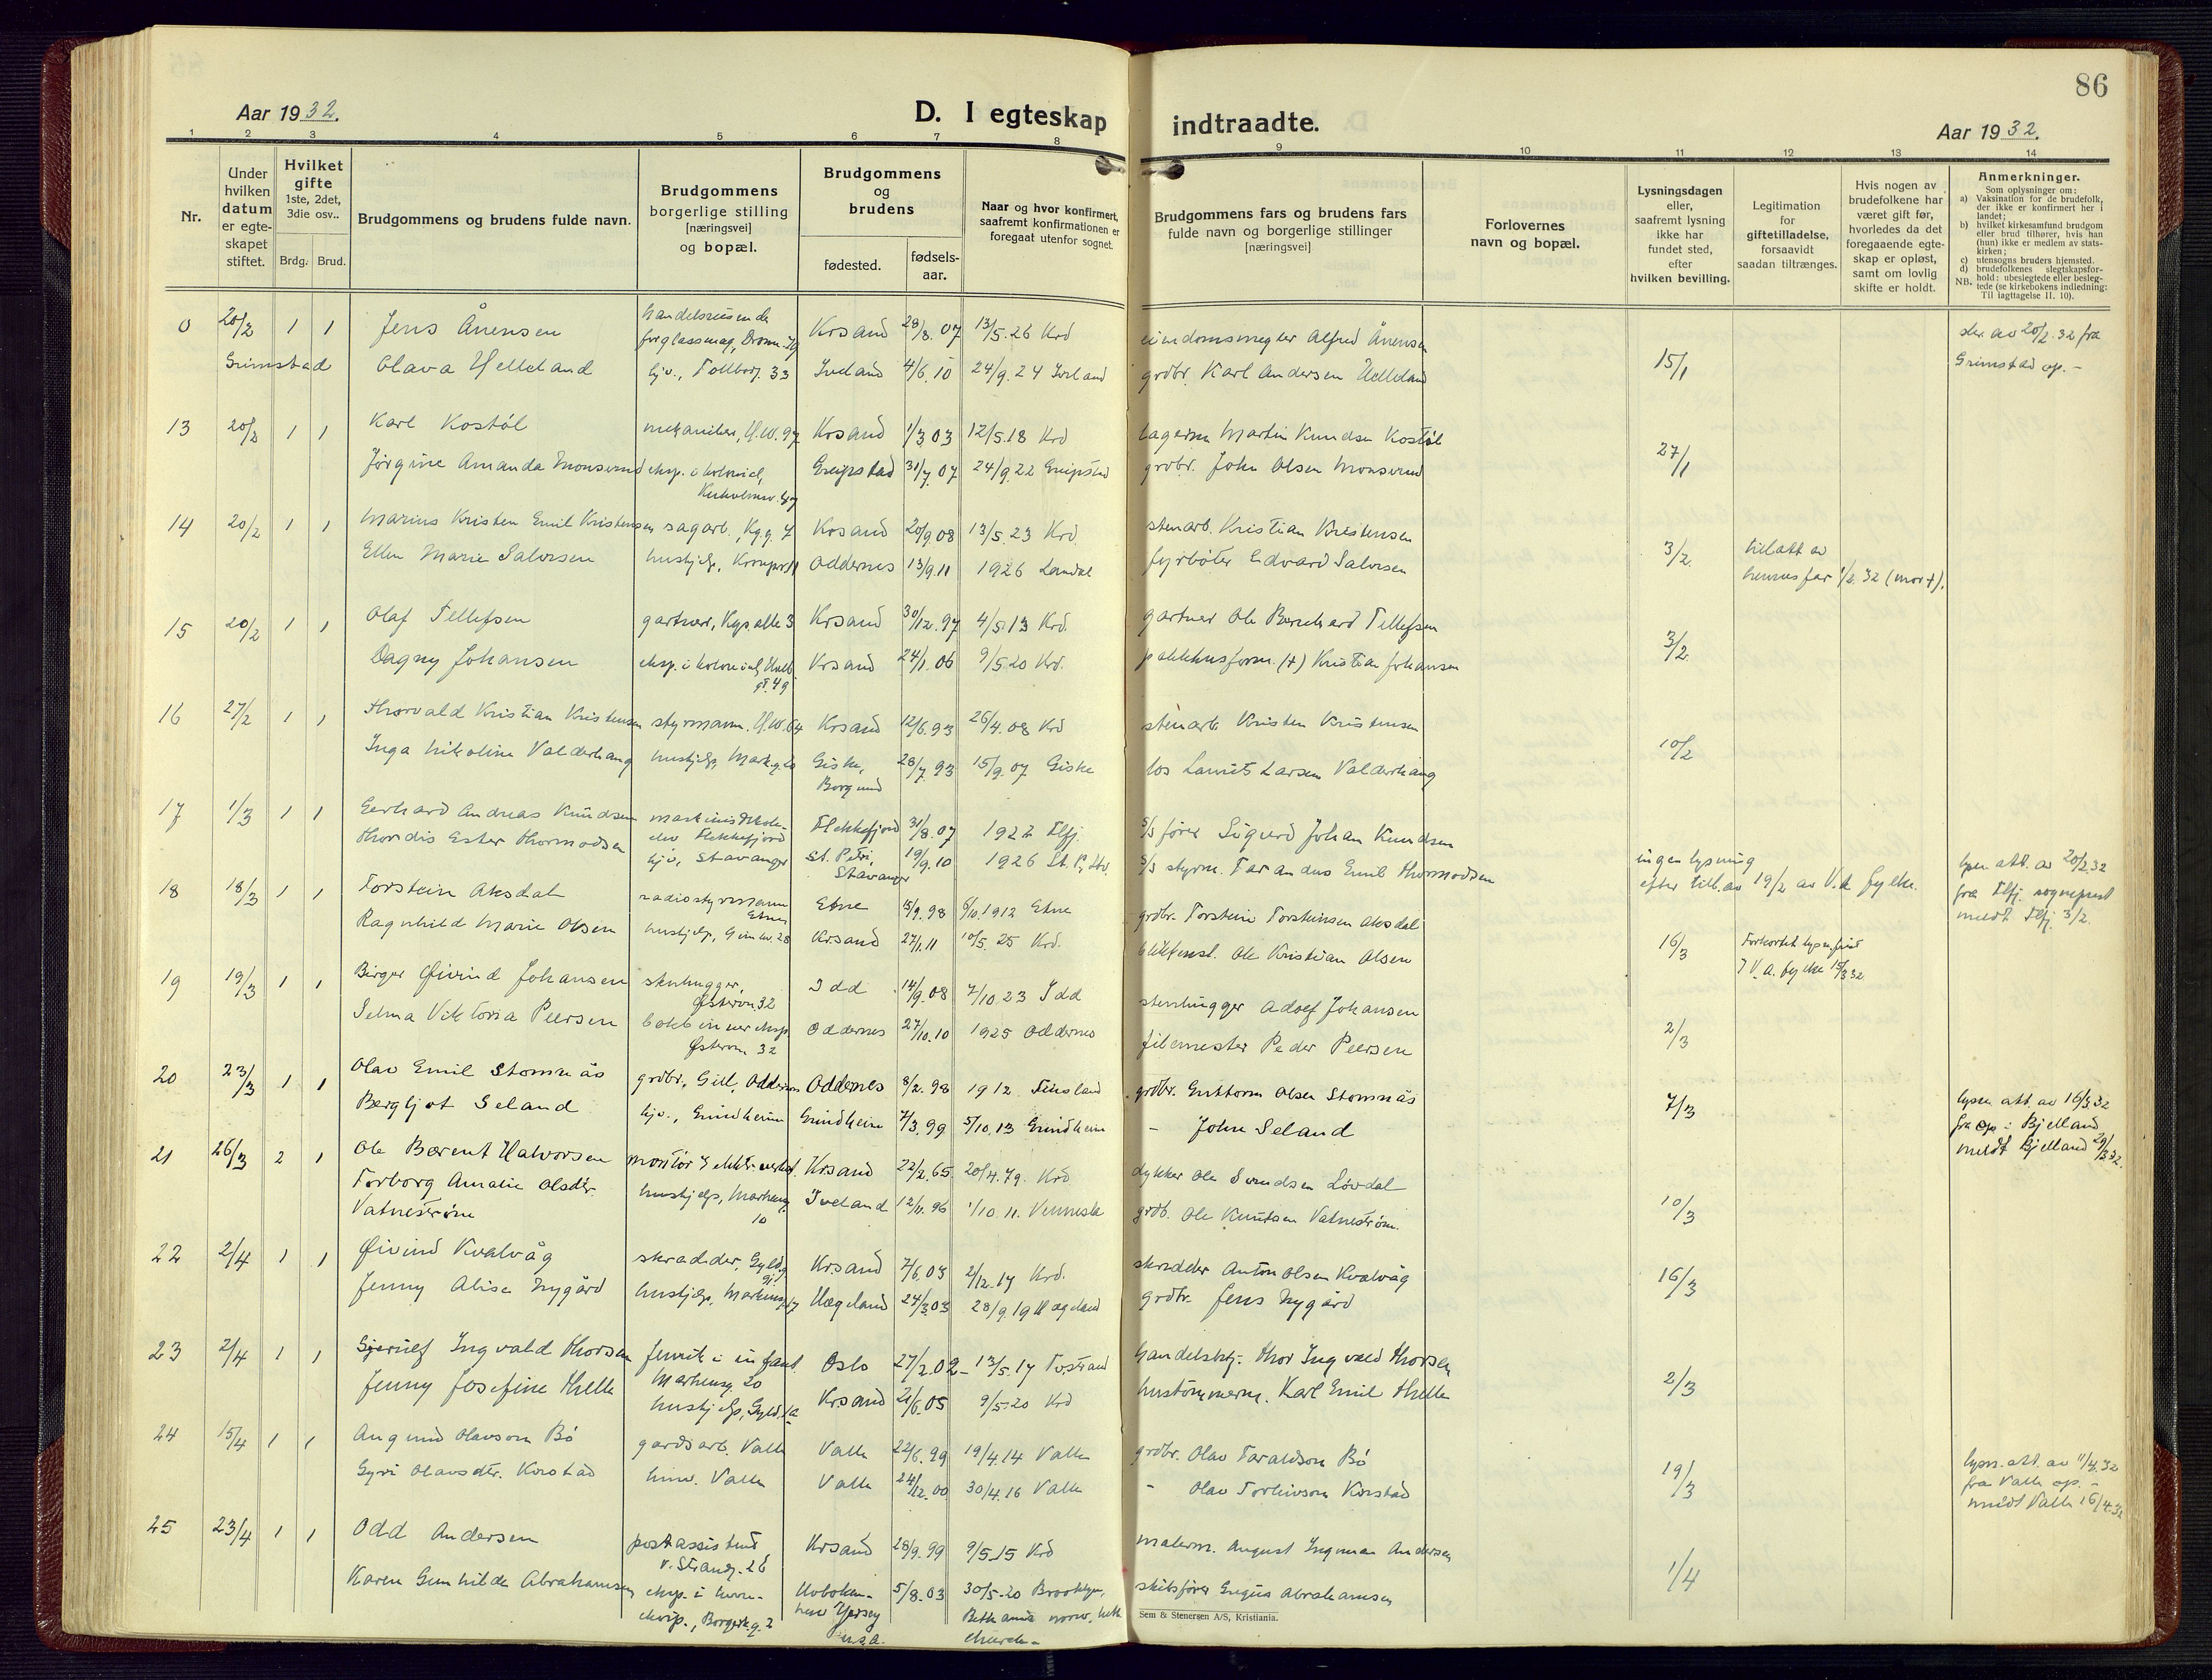 86
Aar 1932.
D. I egteskap indtraadte.
Aar 1932.
1 2 3 4 5 6 7 8 9 10 11 12 13 14
Nr.
Under hvilken datum er egte-skapet stiftet.
Hvilket gifte 1ste, 2det, 3die osv..
Brdg. Brud.
Brudgommens og brudens fulde navn.
Brudgommens borgerlige stilling [næringsvei] og bopæl.
Brudgommens og brudens
fødested. fødsels-aar.
Naar og hvor konfirmert, saafremt konfirmationen er foregaat utenfor sognet.
Brudgommens fars og brudens fars fulde navn og borgerlige stillinger [næringsvei]
Forlovernes navn og bopæl.
Lysningsdagen eller, saafremt lysning ikke har fundet sted, efter hvilken bevilling.
Legitimation for giftetilladelse, forsaavidt saadan tiltrænges.
Hvis nogen av brudefolkene har været gift før, hvorledes da det foregaaende egte-skap er opløst, samt om lovlig skifte er holdt.
Anmerkninger.
Som oplysninger om:
a) Vaksination for de brudefolk, der ikke er konfirmert her i landet;
b) hvilket kirkesamfund brudgom eller brud tilhører, hvis han (hun) ikke er medlem av stats-kirken;
c) utensogns bruders hjemsted.
d) brudefolkenes slegtskapsfor-hold: ubeslegtede eller besleg-tede (se kirkebokens indledning: Til iagttagelse II. 10).
NB.
0 20/2 1 1 Jens Ånensen handelsreisende Krsand 28/8.07 13/5.26 Krd eiendomsmegler Alfred Ånensen 15/1
Grimstad Olava Helleland hjv., Tollbog. 33 Iveland 4/6.10 24/9.24 Iveland grdbr. Karl Andersen Helleland
av 20/2.32 fra Grimstad op.-
13 20/2 1 1 Karl Kostøl mekaniker, H.W. 97 Krsand 1/3 03 12/5.18 Krd lagerm Martin Knudsen Kostøl 27/1
Jørgine Amanda Monsvend eksp. i kolonial, Kirkeholmsv. 47 Greipstad 31/7.07 24/9.22 Greipstad grdbr. John Olsen Monsvend
14 20/2 1 1 Marius Kristen Emil Kristensen sagarb., Kg.g. 7 Krsand 20/9.08 13/5.23 Krd. stenarb. Kristian Kristensen 3/2
Ellen Marie Salvesen hushjelp, Oddernes 13/9.11 1926 Landal fyrbøter Edvard Salvesen
till.att av hennes far 1/2.32 (mor †).
15 20/2 1 1 Olaf Tellefsen gartner, Kgs. alle 3 Krsand 30/12.97 4/5.13 Krd. gartner Ole Bernhard Tellefsen 3/2
Dagny Johansen eksp. i kolonial, Krsand 24/1.06 9/5.20 Krd. pakkhusform. (†) Kristian Johansen
gt. 49
16 27/2 1 1 Thorvald Kristian Kristensen styrmann. H.W. 64 Krsand 12/6.93 26/4.08 Krd stenarb Kristen Kristensen 10/2
Inga Nikoline Valderhaug hushjelp, Mark.g. 20 Giske, Borgund 28/7.93 15/9.07 Giske los Laurits Larsen Valderhaug
17 1/3 1 1 Gerhard Andreas Knudsen maskinistskole-elev Flekkefjord Flekkefjord 31/8.07 1922 Flfj. s/s fører Sigurd Johan Knudsen
Thordis Ester Thormodsen hjv, Stavanger St. Petri, Stavanger 19/9.10 1926 St. P, Stv. s/s styrm. Tarandus Emil Thormodsen
ingen lysning efter till. av 19/2 av V.A. fylke.
lysn att. av 20/2 32 fra Flfj. sogneprest meldt Flfj. 3/2.
18 18/3 1 1 Torstein Aksdal radiostyrmann Etne Etne 15/9.98 6/10.1912 Etne grdbr. Torstein Torsteinsen Aksdal 16/3
Ragnhild Marie Olsen hushjelp, Gimlev. 28 Krsand 27/1.11 10/5.25 Krd. Ole Kristian Olsen
Forkortet lysn.frist V.A. fylke 15/3 32
19 19/3 1 1 Birger Øivind Johansen stenhugger, Østervn. 32 Idd 14/9.08 7/10.23 Idd stenhugger Adolf Johansen 2/3
Selma Viktoria Peersen eksp. Østervn 32 Oddernes 27/10.10 1925 Oddernes filemester Peder Peersen
20 23/3 1 1 Olav Emil Stomnås grdbr., Gill, Oddernes Oddernes 8/2.98 1912 Finsland grdbr. Guttorm Olsen Stomnås 7/3
Bergljot Seland hjv., Grindheim Grindheim 7/3.99 5/10.13 Grindheim - John Seland
lysn att. av 16/3 32 fra op i Bjelland meldt Bjelland 29/3 32.
21 26/3 2 1 Ole Berent Halvorsen montør i elektr. verket Krsand 22/2.65 20/4.79. Krd dykker Ole Svendsen Løvdal 10/3
Torborg Amalie Olsdtr. Vatnestrøm hushjelp, Markensg 10 Iveland 12/11.96 1/10.11. Vennesla grdb. Ole Knutsen Vatnestrøm.
22 2/4 1 1 Øivind Kvalvåg skredder, Gyld.g Krsand 7/6.03 2/12.17 Krd. skredder Anton Olsen Kvalvåg 16/3
Jenny Alise Nygård hushjelp, Markensg. 17 Hægeland 24/3.03 28/9.19 Hægeland grdbr. Jens Nygård
23 2/4 1 1 Gjerulf Ingvald Thorsen fenrik i infant. Markensg. 20 Oslo 27/2.02 13/5.17 Tostrand handelsbtj. Thor Ingvald Thorsen 2/3
Jenny Josefine Thelle hushjelp, Gyld. 1a Krsand 21/6.05 9/5.20 Krd hustømmerm. Karl Emil Thelle
24 15/4 1 1 Aagmund Olavson Bø gardsarb. Valle Valle 22/6.99 19/4.14 Valle grdbr. Olav Taraldson Bø 19/3
Gyri Olavsdtr. Korstad Valle Valle 24/12.00 30/4.16 Valle - Olav Torleivson Korstad
lysn. att. av 11/4.32 fra Valle op. - meldt Valle 16/4.32
25 23/4 1 1 Odd Andersen postassistent v. Strandg. 26 Krsand 28/9.99 9/5.15 Krd malerm. August Ingman Andersen 1/4
Karen Gunhilde Abrahamsen eksp. i Borgerk.g. 2 Hoboken New Yersey U.S.A. 5/8.03 30/5.20 Brooklyn, Bethania norw. luth church- skibsfører Abrahamsen
Sem & Stenersen A/S, Kristiania.